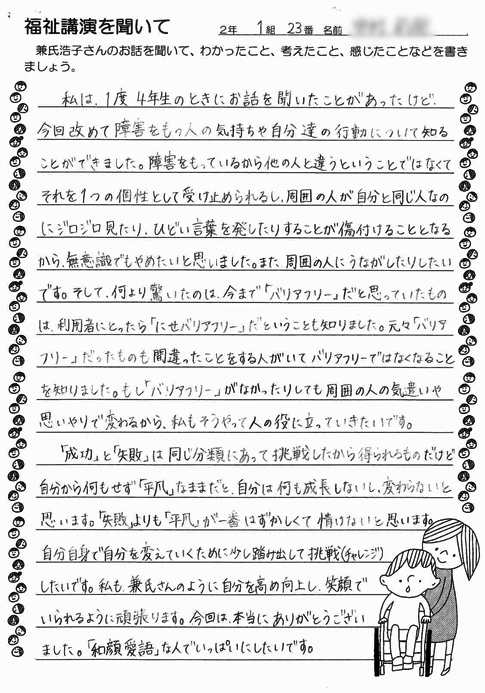 福祉講演を聞いて
2年 1組 23番 名前
兼氏浩子さんのお話を聞いて、わかったこと、考えたこと、感じたことなどを書き
ましょう。
私は、1度4年生のときにお話を聞いたことがあったけど、
今回改めて障害をもつ人の気持ちや自分達の行動について知る
ことができました。障害をもっているから他の人と違うということではなくて
それを1つの個性として受け止められるし、周囲の人が自分と同じ人なの
にジロジロ見たり、ひどい言葉を発したりすることが傷付けることとなる
から、無意識でもやめたいと思いました。また、周囲の人にうながしたりしたい
です。そして、何より驚いたのは、今まで「バリアフリー」だと思っていたもの
は、利用者にとったら「にせバリアフリー」だということも知りました。元々「バリア
フリー」だったものも間違ったことをする人がいてバリアフリーではなくなること
を知りました。もし「バリアフリー」がなかったりしても周囲の人の気遣いや
思いやりで変わるから、私もそうやって人の役に立っていきたいです。
「成功」と「失敗」は同じ分類にあって挑戦したから得られるものだけど
自分から何もせず「平凡」なままだと、自分は何も成長しないし、変わらないと
思います。「失敗」よりも「平凡」が一番はずかしくて情けないと思います。
自分自身で自分を変えていくために少し踏み出して挑戦(チャレンジ)
したいです。私も、兼氏さんのように自分を高め向上し、笑顔で
いられるように頑張ります。今回は、本当にありがとうござい
ました。「和顔愛語」な人でいっぱいにしたいです。